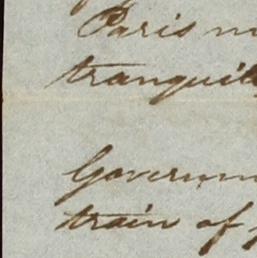 Paris
tranquil
Governm
train of